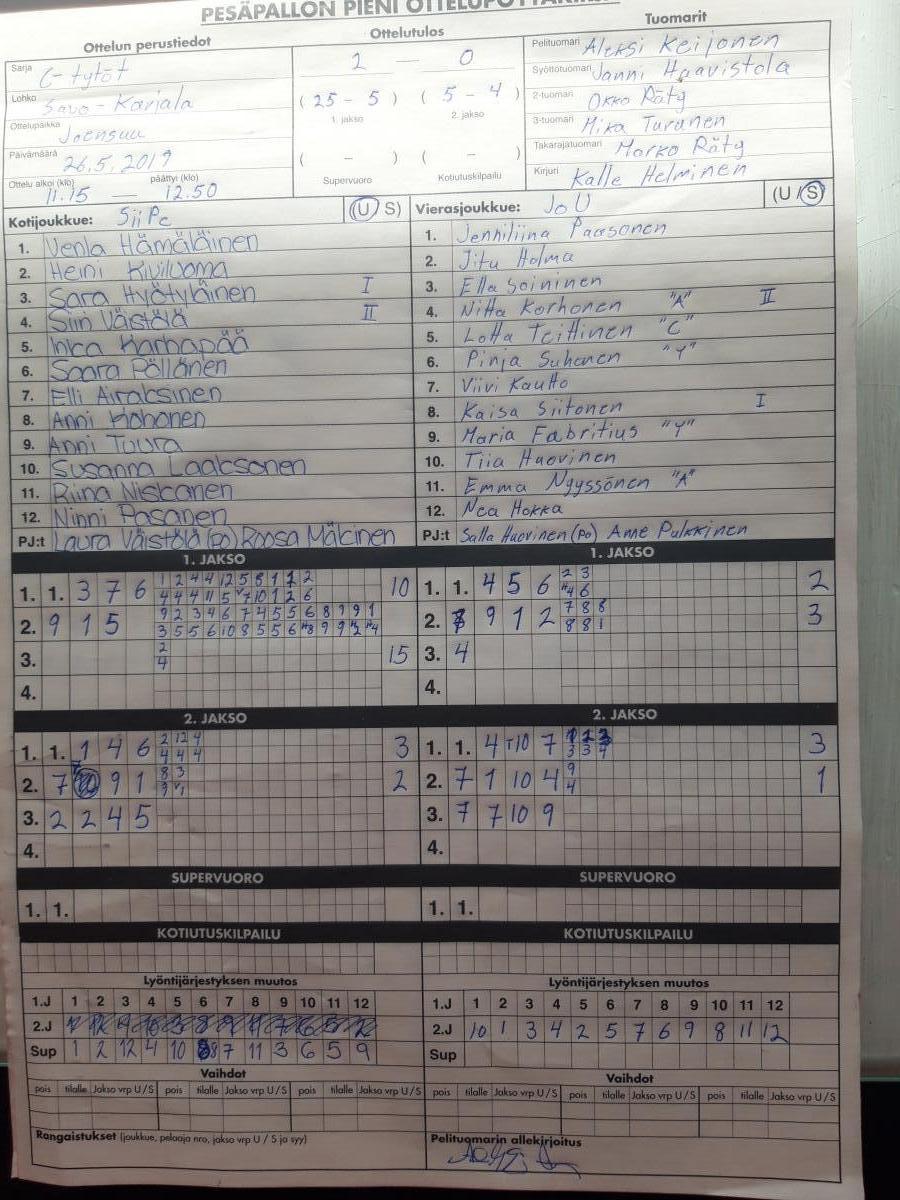 PESÄPALLON PIENI
Ottelun perustiedot
Ottelutulos
Tuomarit
Sarja C-tytöt
Lohko Savo-Karjala
Ottelupaikka Joensuu
Päivämäärä 26.5.2019
Ottelu alkoi (klo) 11.15 — päättyi (klo) 12.50
2 — 0
(25 - 5) (5 - 4)
1. jakso 2. jakso
( - ) ( - )
Supervuoro Kotiutuskilpailu
Pelituomari Aleksi Keijonen
Syöttötuomari Janni Haavistola
2-tuomari Okko Räty
3-tuomari Mika Turunen
Takarajatuomari Marko Räty
Kirjuri Kalle Helminen
Kotijoukkue: SiiPe (U/S)
1. Venla Hämäläinen
2. Heini Kiviluoma
3. Sara Hyötyläinen I
4. Siiri Väistölä II
5. Inka Karhapää
6. Saara Pöllänen
7. Elli Airaksinen
8. Anni Kohonen
9. Anni Tuura
10. Susanna Laaksonen
11. Riina Niskanen
12. Ninni Pasanen
PJ:t Laura Väistölä (po) Roosa Mäkinen
Vierasjoukkue: JoU (U/S)
1. Jenniliina Paasonen
2. Jitu Holma
3. Ella Soininen
4. Nitta Korhonen "A" II
5. Lotta Teittinen "C"
6. Pinja Suhonen "Y"
7. Viivi Kautto
8. Kaisa Siitonen I
9. Maria Fabritius "Y"
10. Tiia Huovinen
11. Emma Nyyssönen "A"
12. Nea Hokka
PJ:t Salla Huovinen (po) Anne Pulkkinen
1. JAKSO
1. 1. 3 7 6 1 2 4 4 12 5 8 1 1 2 10
4 4 4 11 5 7 10 1 2 6
2. 9 1 5 9 2 3 4 6 7 4 5 5 6 8 7 9 1
3 5 5 6 10 8 5 5 6 8 9 9 2 4
3. 2 15
4
4.
1. JAKSO
1. 1. 4 5 6 2 3 2
4 6
2. 9 1 2 7 8 8 3
8 8 1
3. 4
4.
2. JAKSO
1. 1. 1 4 6 2 12 4 3
4 4 4
2. 7 9 1 8 3 2
9 1
3. 2 2 4 5
4.
2. JAKSO
1. 1. 4 T10 7 1 2 3 3
3 3 4
2. 7 1 10 4 9 1
4
3. 7 7 10 9
4.
SUPERVUORO
1. 1.
SUPERVUORO
1. 1.
KOTIUTUSKILPAILU
KOTIUTUSKILPAILU
Lyöntijärjestyksen muutos
1.J 1 2 3 4 5 6 7 8 9 10 11 12
2.J
Sup 1 2 12 4 10 8 7 11 3 6 5 9
Lyöntijärjestyksen muutos
1.J 1 2 3 4 5 6 7 8 9 10 11 12
2.J 10 1 3 4 2 5 7 6 9 8 11 12
Sup
Vaihdot
pois tilalle Jakso vrp U/S pois tilalle Jakso vrp U/S pois tilalle Jakso vrp U/S
Vaihdot
pois tilalle Jakso vrp U/S pois tilalle Jakso vrp U/S pois tilalle Jakso vrp U/S
Rangaistukset (joukkue, pelaaja nro, jakso vrp U / S ja syy)
Pelituomarin allekirjoitus